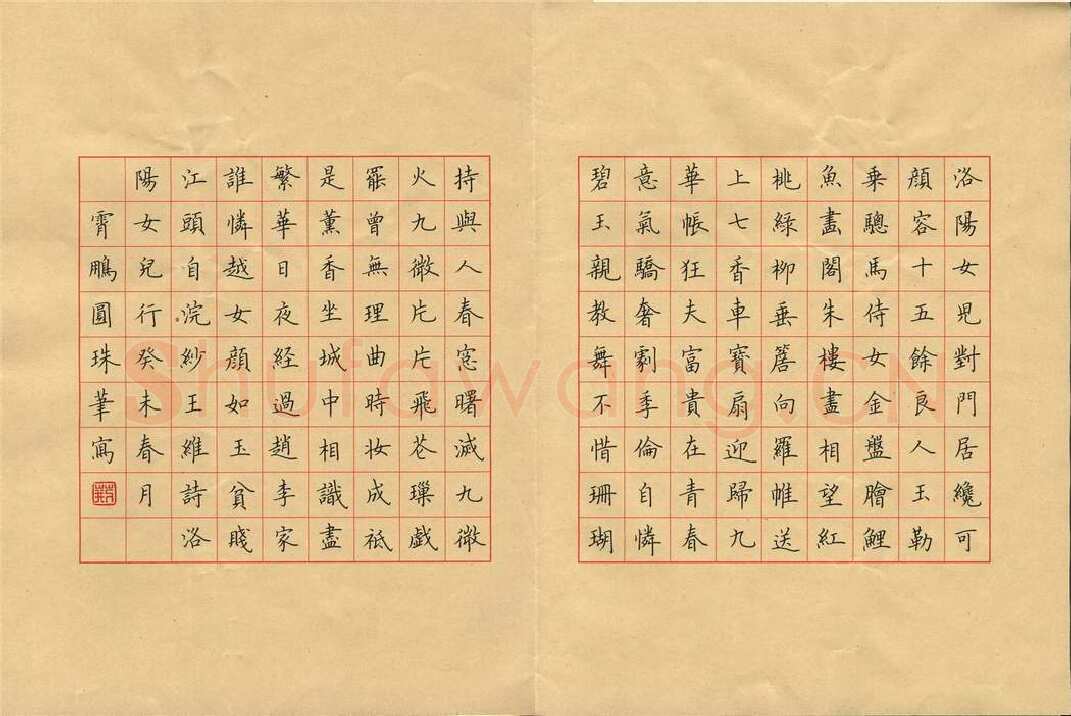 洛陽女兒對門居纔可
顔容十五餘良人玉勒
乗驄馬侍女金盤膾鯉
魚畫閣朱樓盡相望紅
桃綠柳垂簷向羅帷送
上七香車寶扇迎歸九
華帳狂夫富貴在青春
意氣驕奢劇季倫自憐
碧玉親教舞不惜珊瑚
持與人春窓曙滅九微
火九微片片飛花璅戲
罷曾無理曲時妝成祗
是薰香坐城中相識盡
繁華日夜経過趙李家
誰憐越女顔如玉貧賤
江頭自浣紗王維詩洛
陽女兒行癸未春月
霄鵬圓珠筆寫
Shufawang.CN